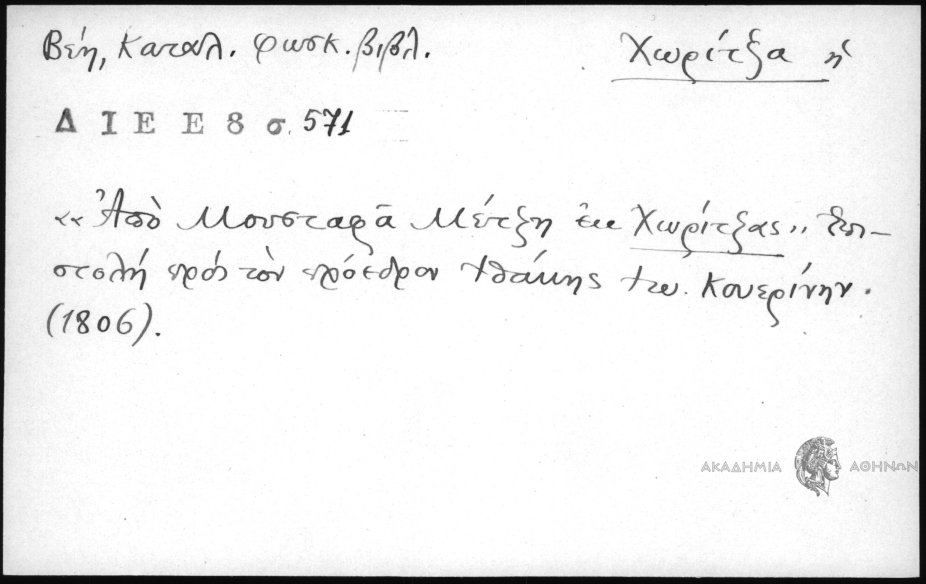 Βέη, Καταλ. φωσκ. βιβλ. Χωρίτζα ἡ
ΔΙΕΕ 8 σ. 571
«Ἀπὸ Μουσταφᾶ Μέτζη ἐκ Χωρίτζας» Ἐπι-
στολή πρός τὸν πρόεδρον Ἰθάκης Ἰω. Κουερίνην.
(1806).
ΑΚΑΔΗΜΙΑ ΑΘΗΝΩΝ